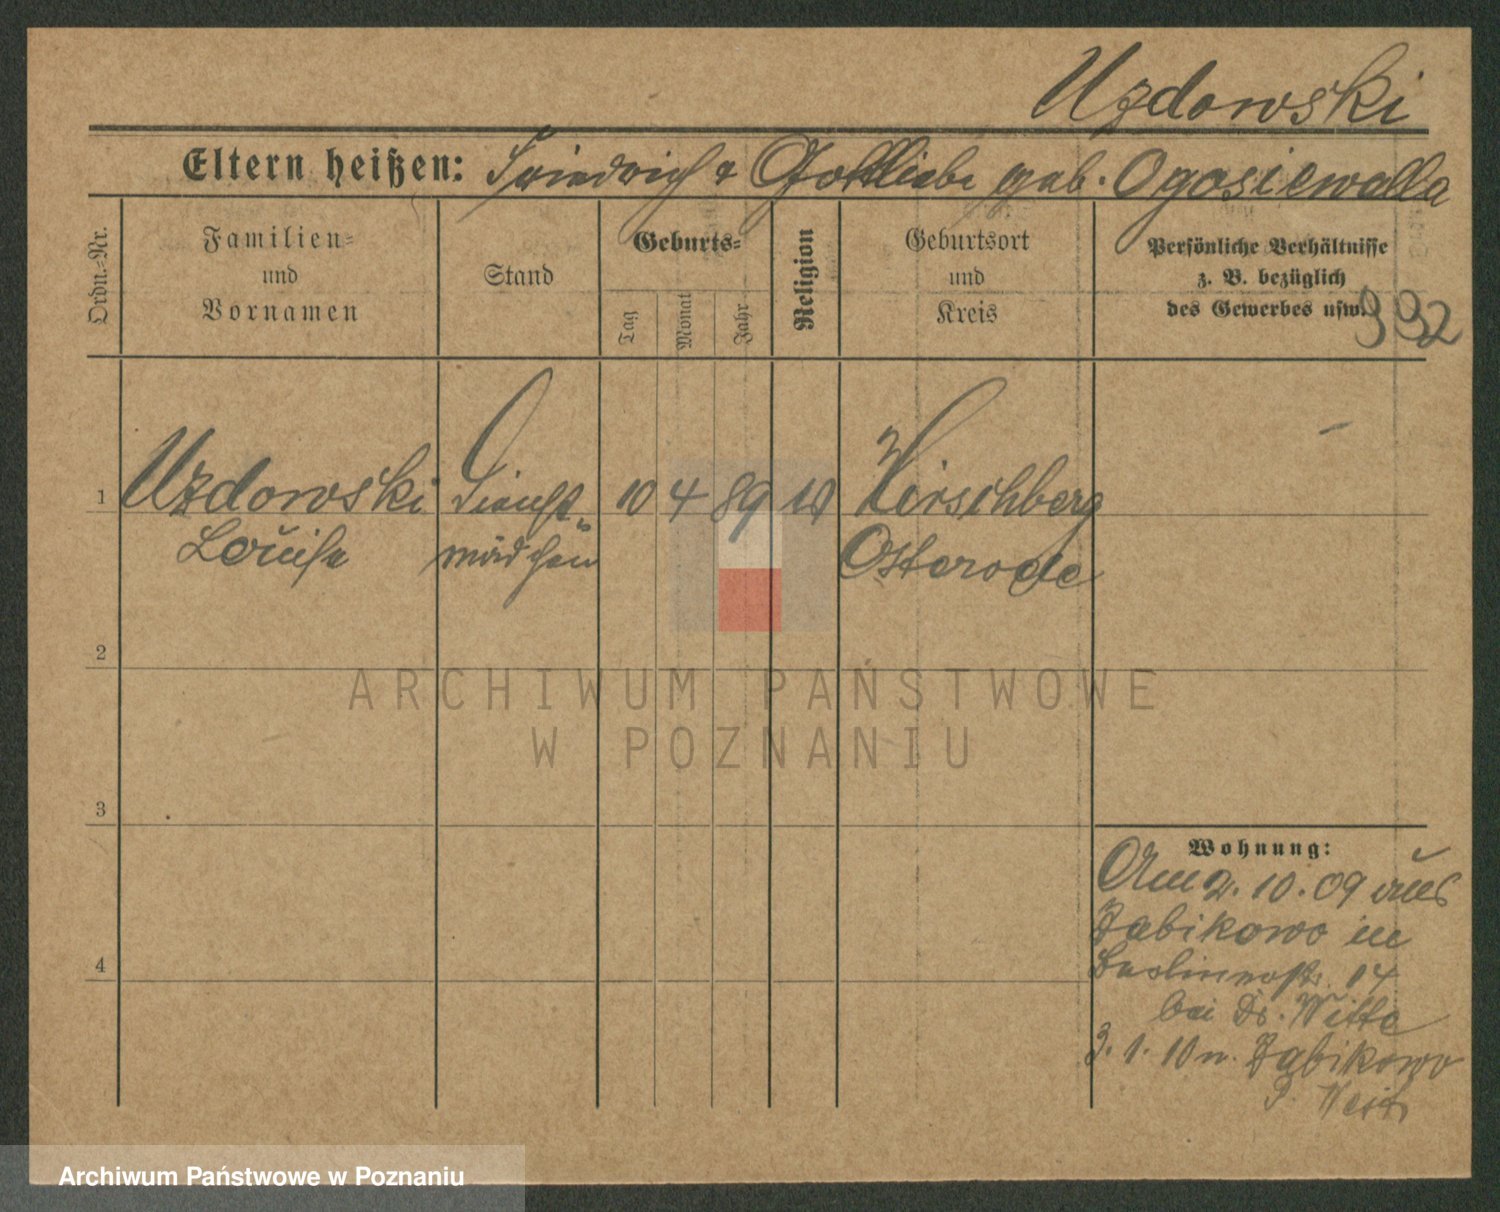 Uzdowski
Eltern heißen: Friedrich & Gottliebe geb. Ogasiewalla
Ordn.-Nr.
Familien- und Vornamen
Stand
Geburts-
Tag
Monat
Jahr
Religion
Geburtsort und Kreis
Persönliche Verhältnisse
z. B. bezüglich
des Gewerbes usw.
992
1 Uzdowski Dienst- 10 4 89 Hirschberg
Louise mädchen Osterode
2
3
4
Wohnung:
Am 2. 10. 09 aus
Zabikowo in
14
bei Dr. Witte
3. 1. 10 n. Zabikowo
ARCHIWUM PAŃSTWOWE
W POZNANIU
Archiwum Państwowe w Poznaniu